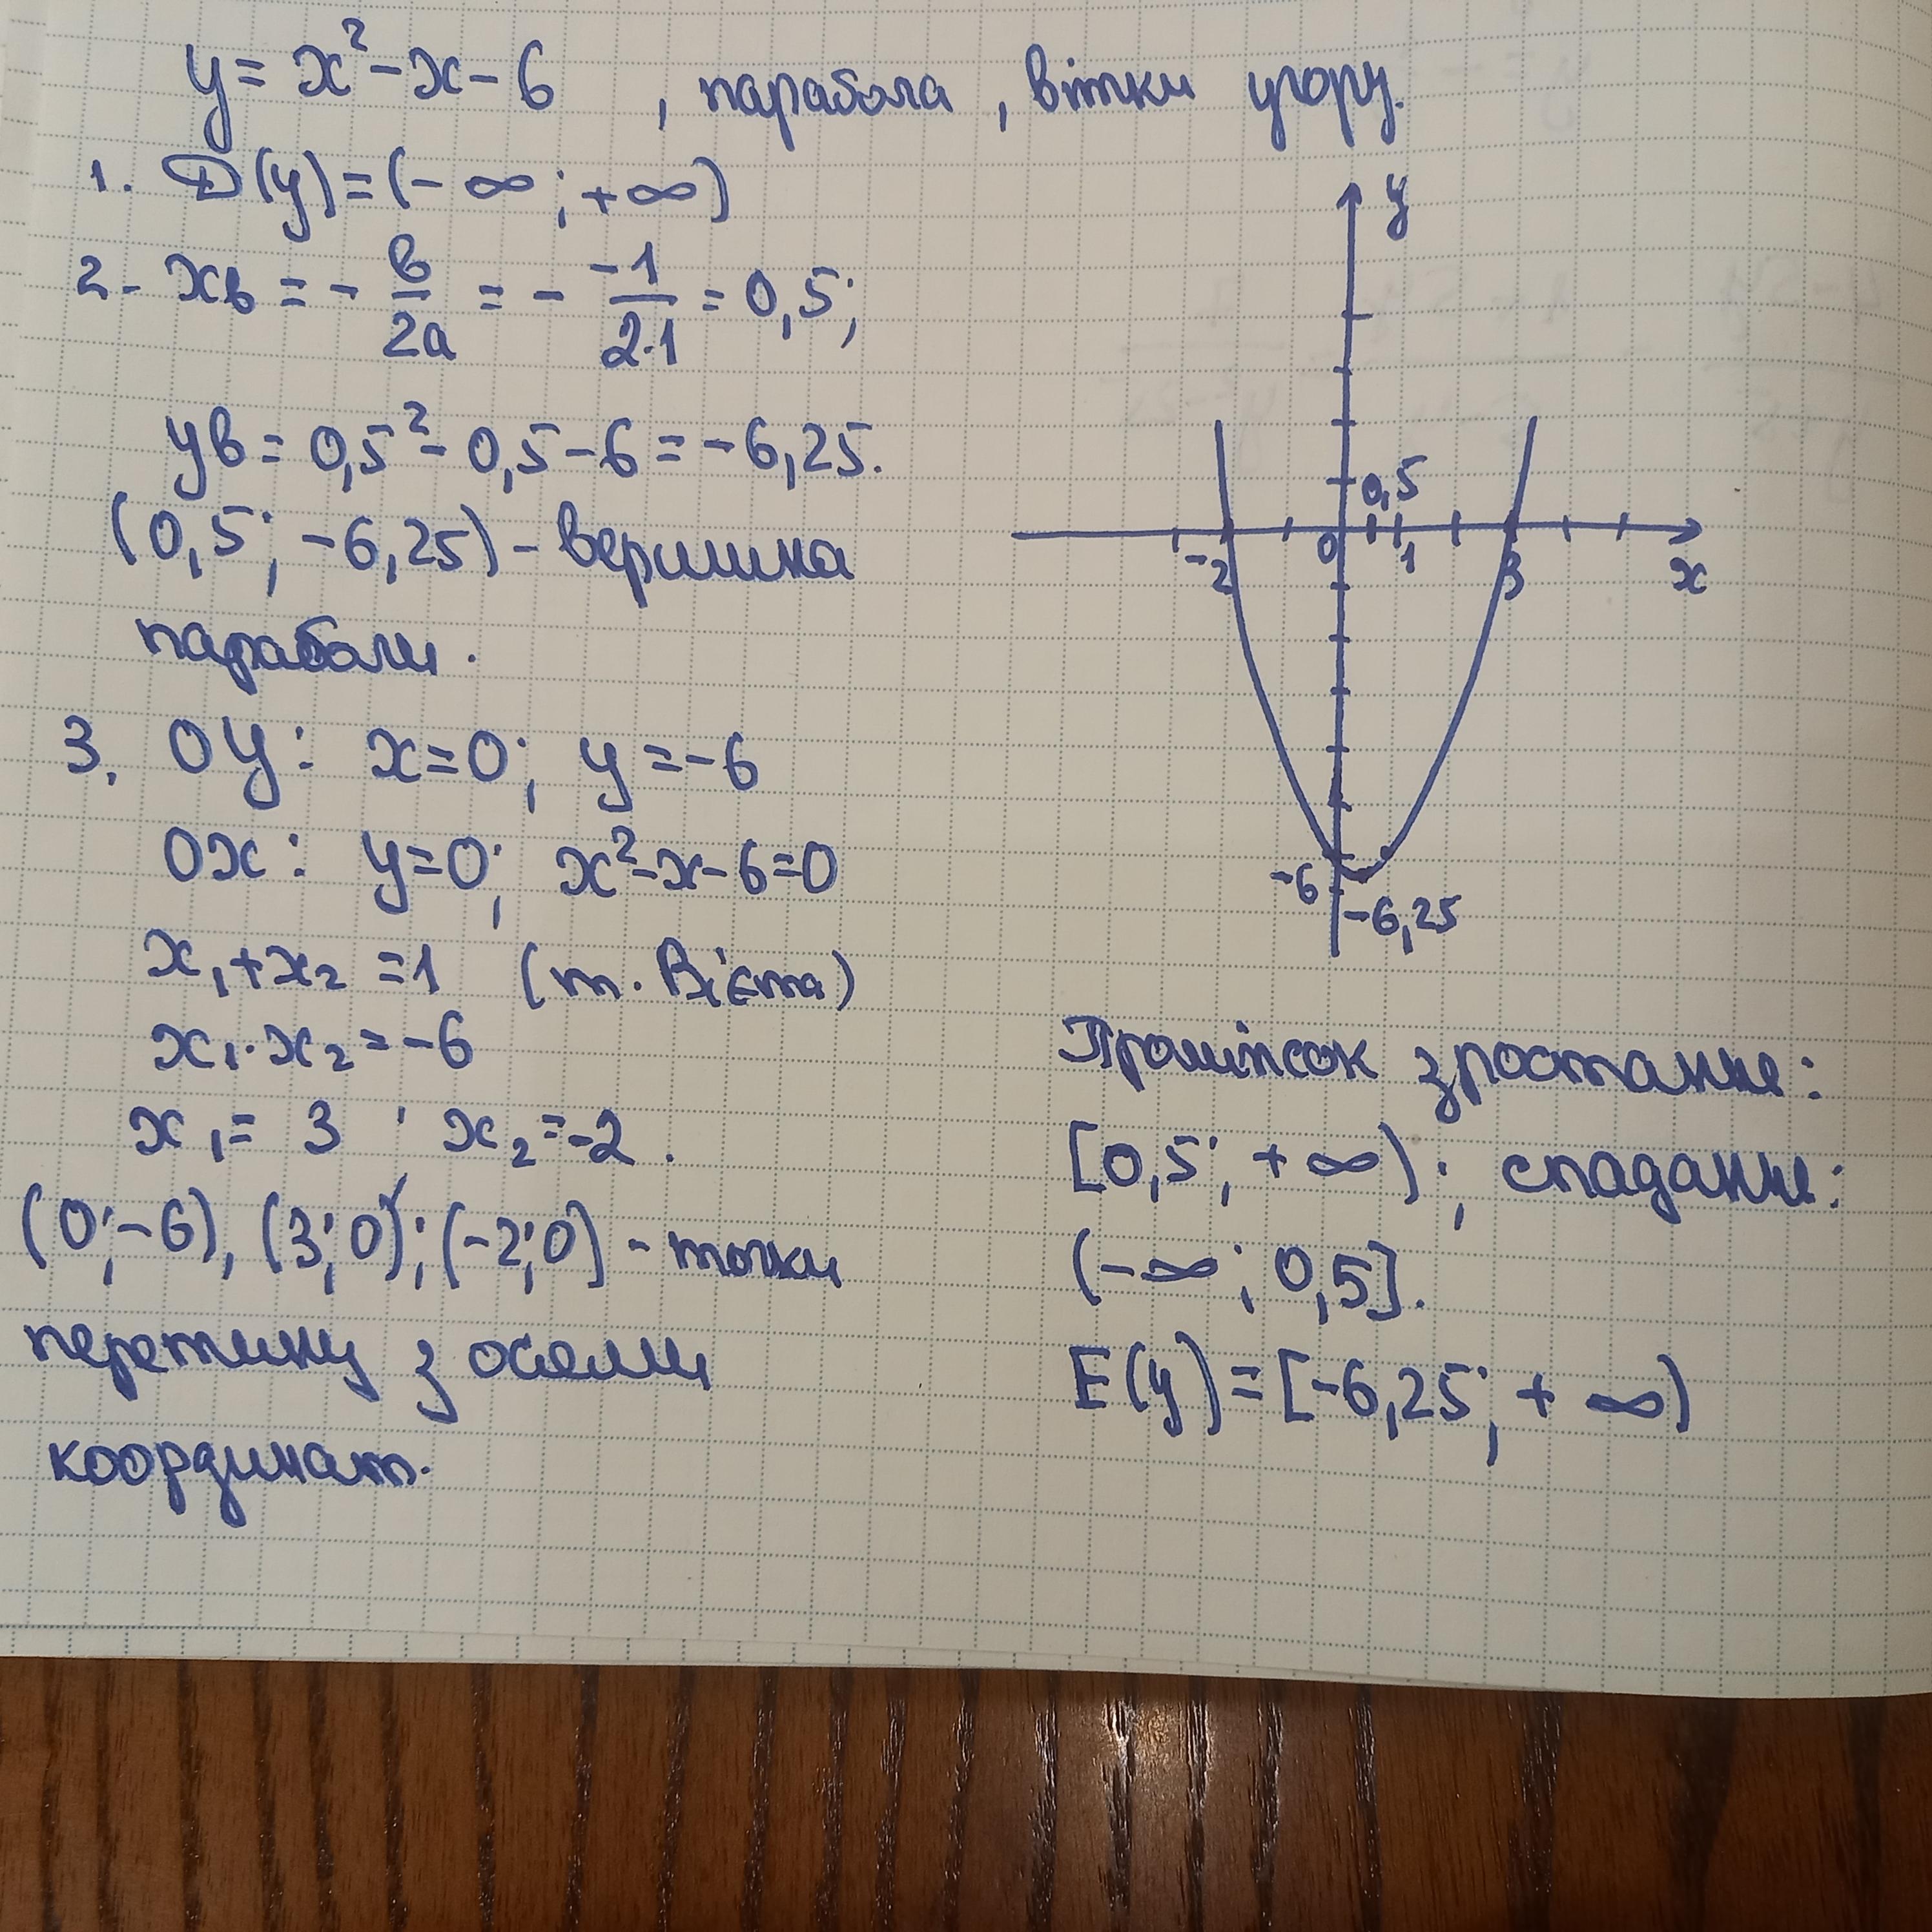 y = x² - x - 6 , парабола , вітки угору.
1. D(y) = (-∞; +∞)
2. xв = - в/2a = - -1/2·1 = 0,5;
yв = 0,5² - 0,5 - 6 = -6,25.
(0,5; -6,25) - вершина
параболи.
3. OY: x = 0; y = -6
OX: y = 0; x² - x - 6 = 0
x₁ + x₂ = 1 (т. Вієта)
x₁ · x₂ = -6
x₁ = 3 ; x₂ = -2.
(0; -6), (3; 0); (-2; 0) - точки
перетину з осями
координат.
y
0,5
-2 0 1 3 x
-6
-6,25
Проміжок зростання:
[0,5; +∞); спадання:
(-∞; 0,5].
E(y) = [-6,25; +∞)